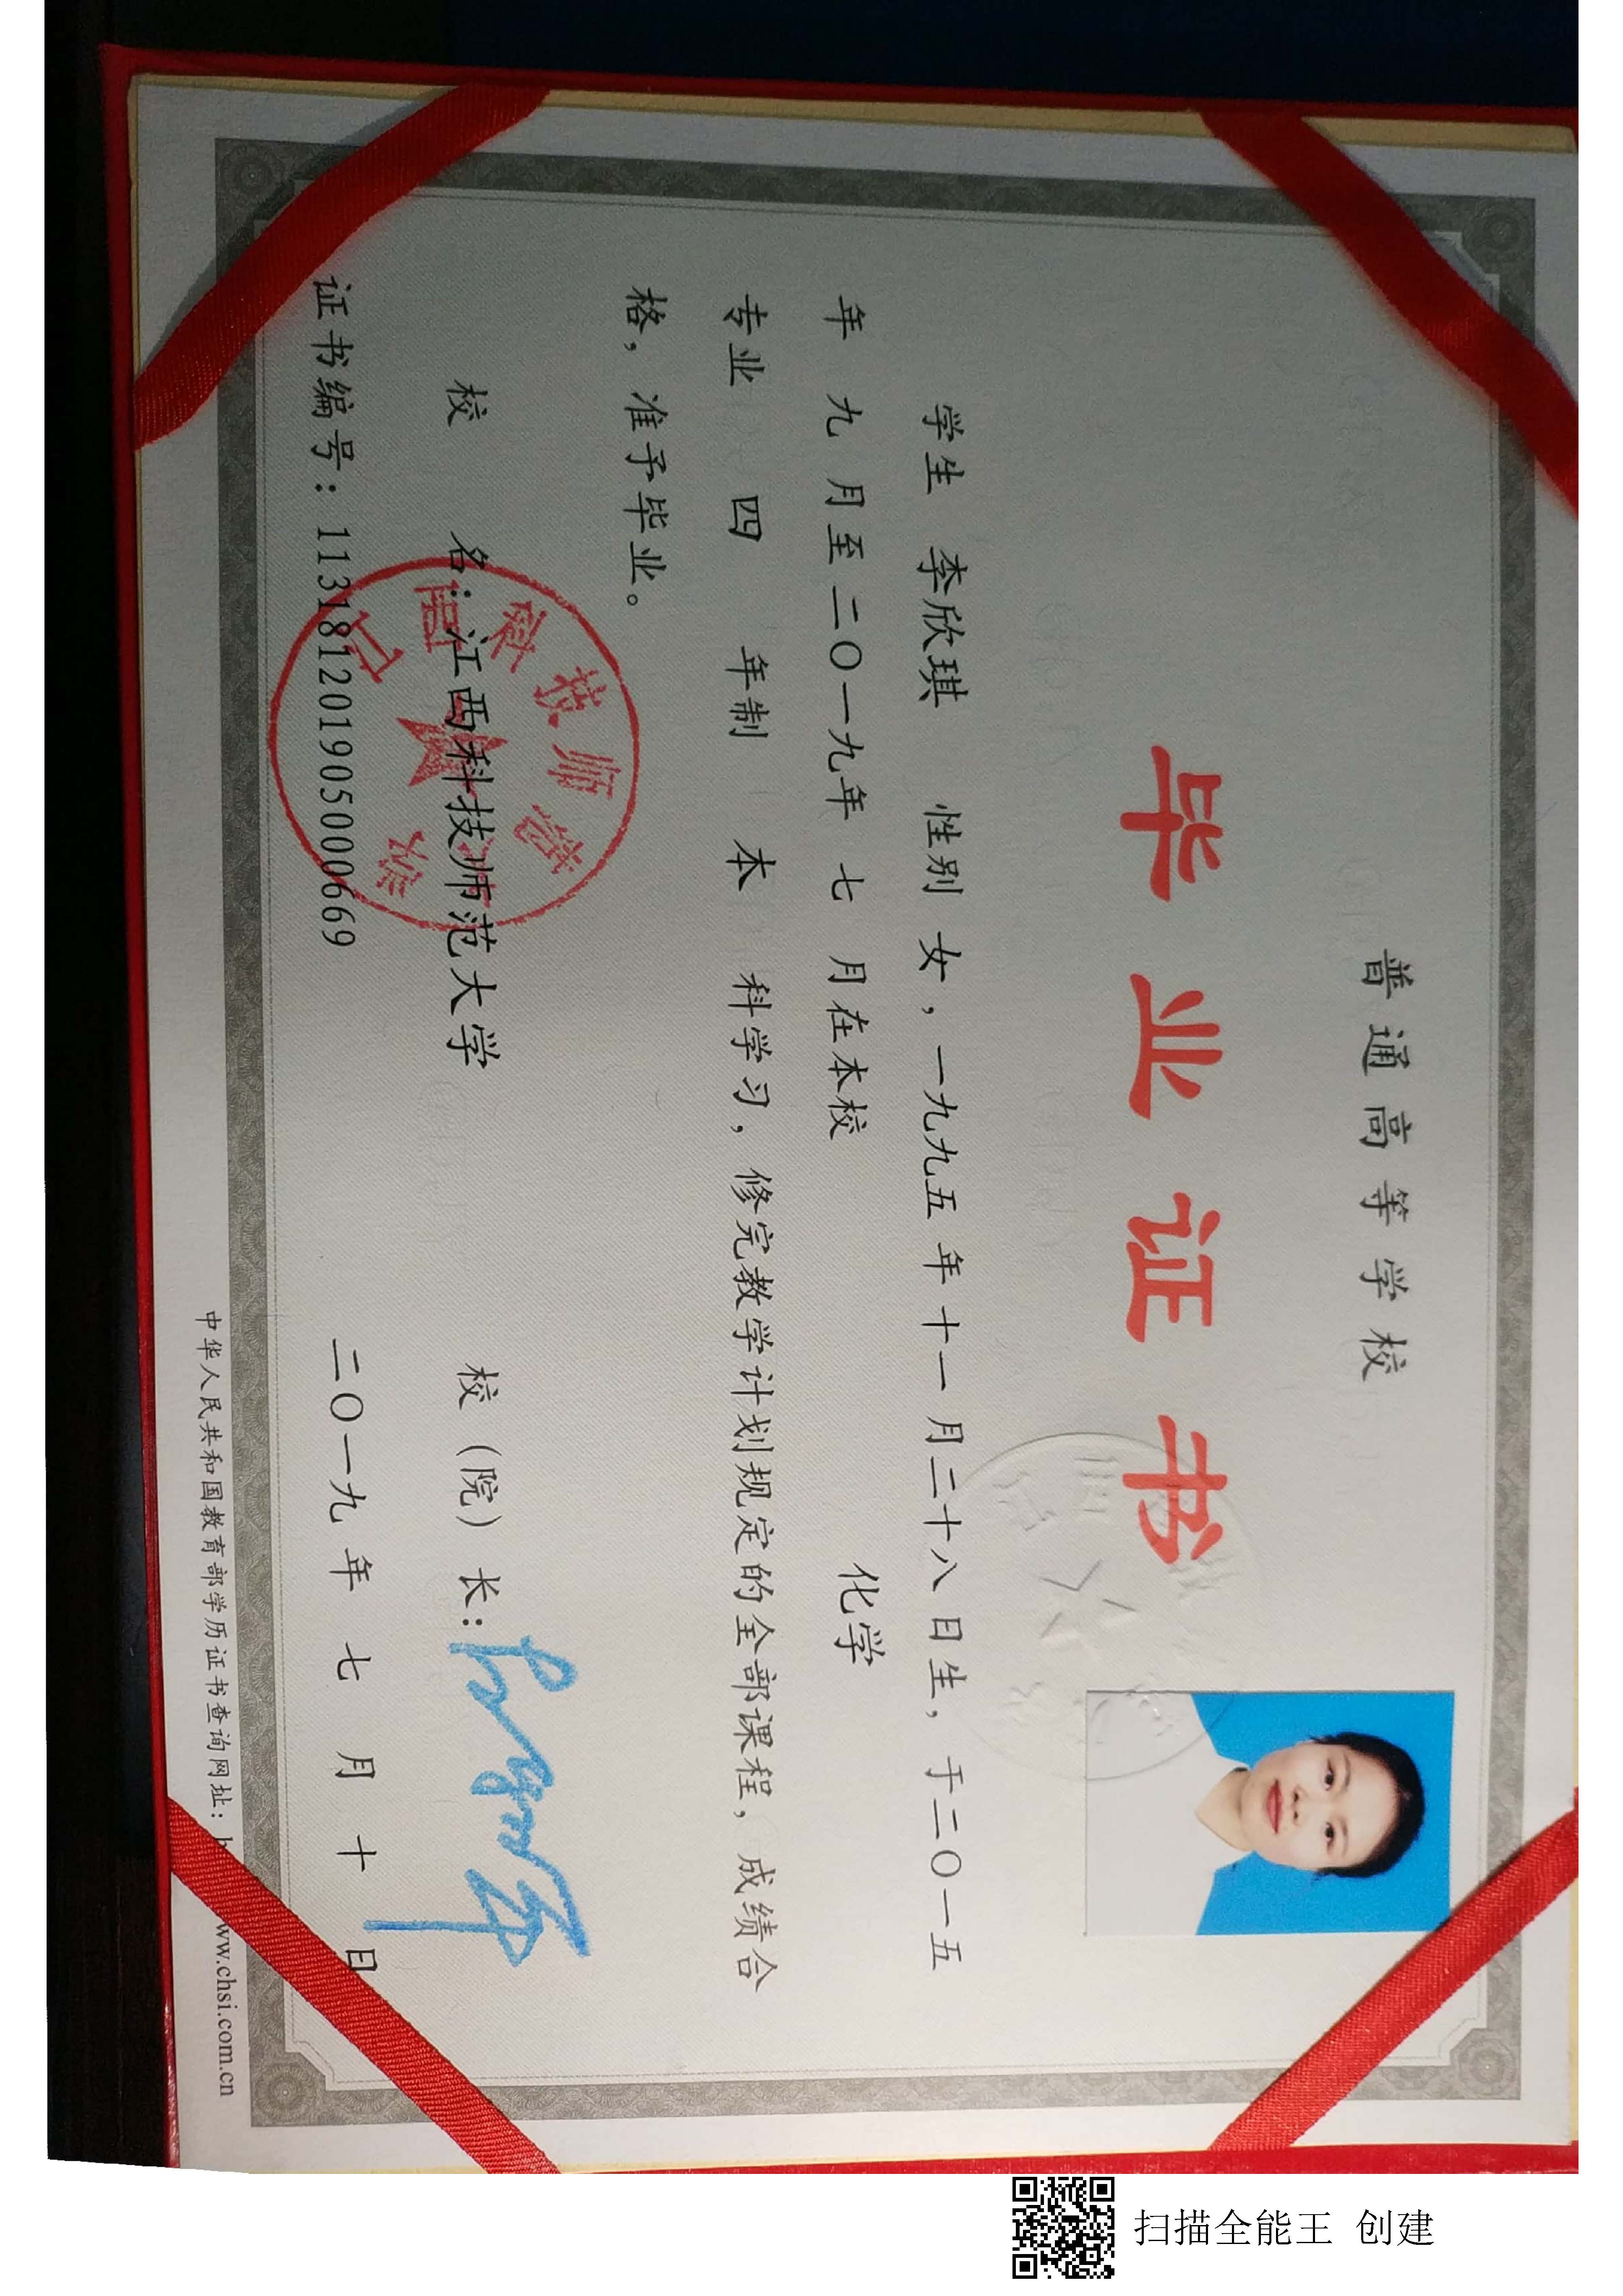 普通高等学校
毕业证书
学生 李欣琪 性别 女，一九九五年十一月二十八日生，于二〇一五
年 九 月至二〇一九年 七 月在本校 化学
专业 四 年制 本 科学习，修完教学计划规定的全部课程，成绩合
格，准予毕业。
校 名：江西科技师范大学 校（院）长：
证书编号：113181201905000669 二〇一九年 七 月 十 日
中华人民共和国教育部学历证书查询网址：h www.chsi.com.cn
江西科技师范大学
扫描全能王 创建